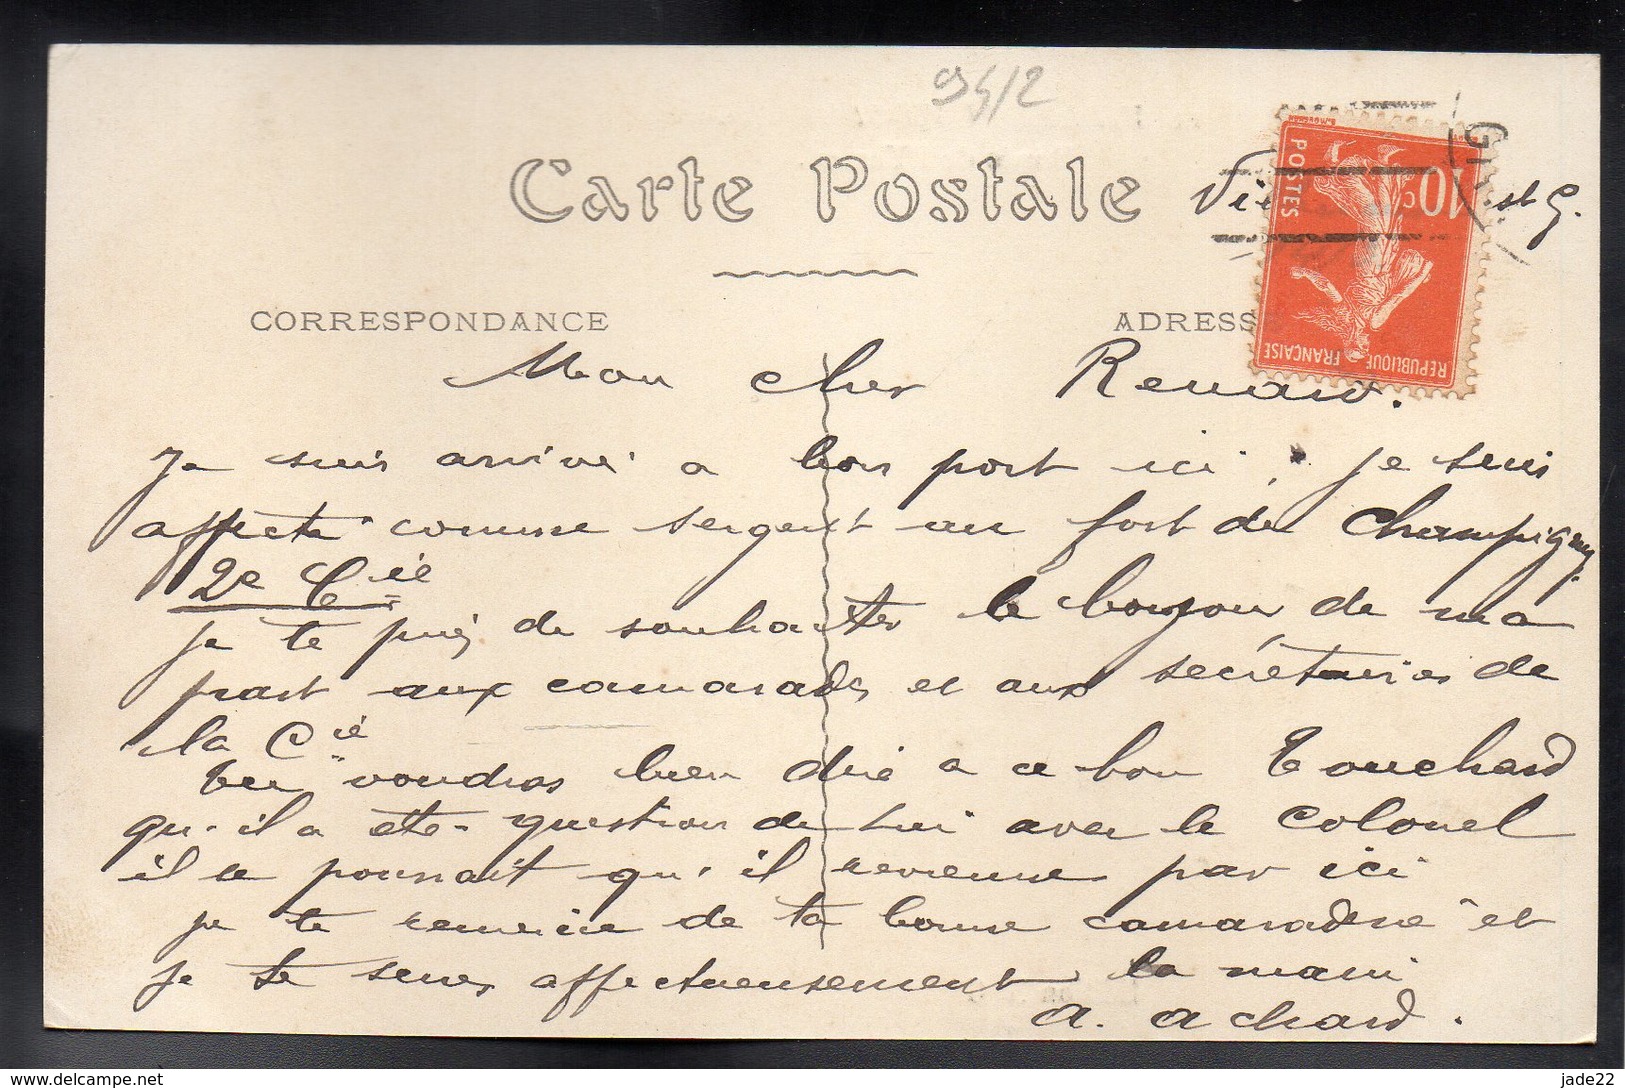 94/2
Carte Postale
st G.
10c
POSTES
REPUBLIQUE FRANÇAISE
CORRESPONDANCE
ADRESS
Mon cher Renard.
Je suis arrivé a bon port ici, je suis
affecté comme sergent au fort de Champigny
2e Cie
je te prie de souhaiter le bonjour de ma
part aux camarades et aux secrétaires de
la Cie
tu voudras bien dire a ce bon Touchard
qu'il a été question de lui avec le Colonel
il se pourrait qu'il revienne par ici
je te remercie de ta bonne camaraderie et
je te serre affectueusement la main
A. Achard.
www.delcampe.net
jade22